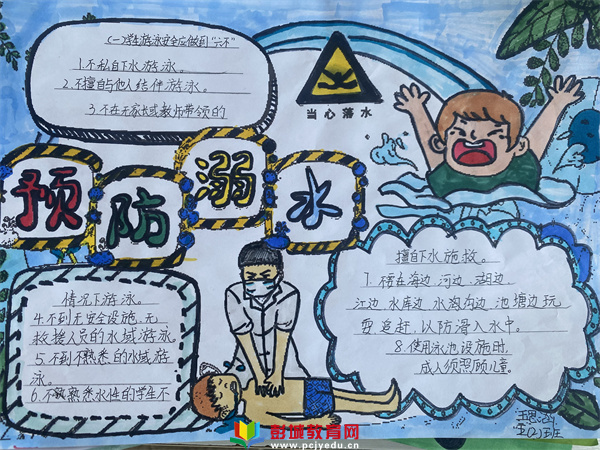 (一)学生游泳安全应做到"六不"
1.不私自下水游泳。
2.不擅自与他人结伴游泳。
3.不在无家长或教师带领的
当心落水
预防溺水
情况下游泳。
4.不到无安全设施、无
救援人员的水域游泳。
5.不到不熟悉的水域游
泳。
6.不熟悉水性的学生不
擅自下水施救。
7.不在海边、河边、湖边、
江边、水库边、水沟边、池塘边玩
耍、追赶,以防滑入水中。
8.使用泳池设施时,
成人须照顾儿童。
五(2)班
彭城教育网
www.pcjyedu.cn